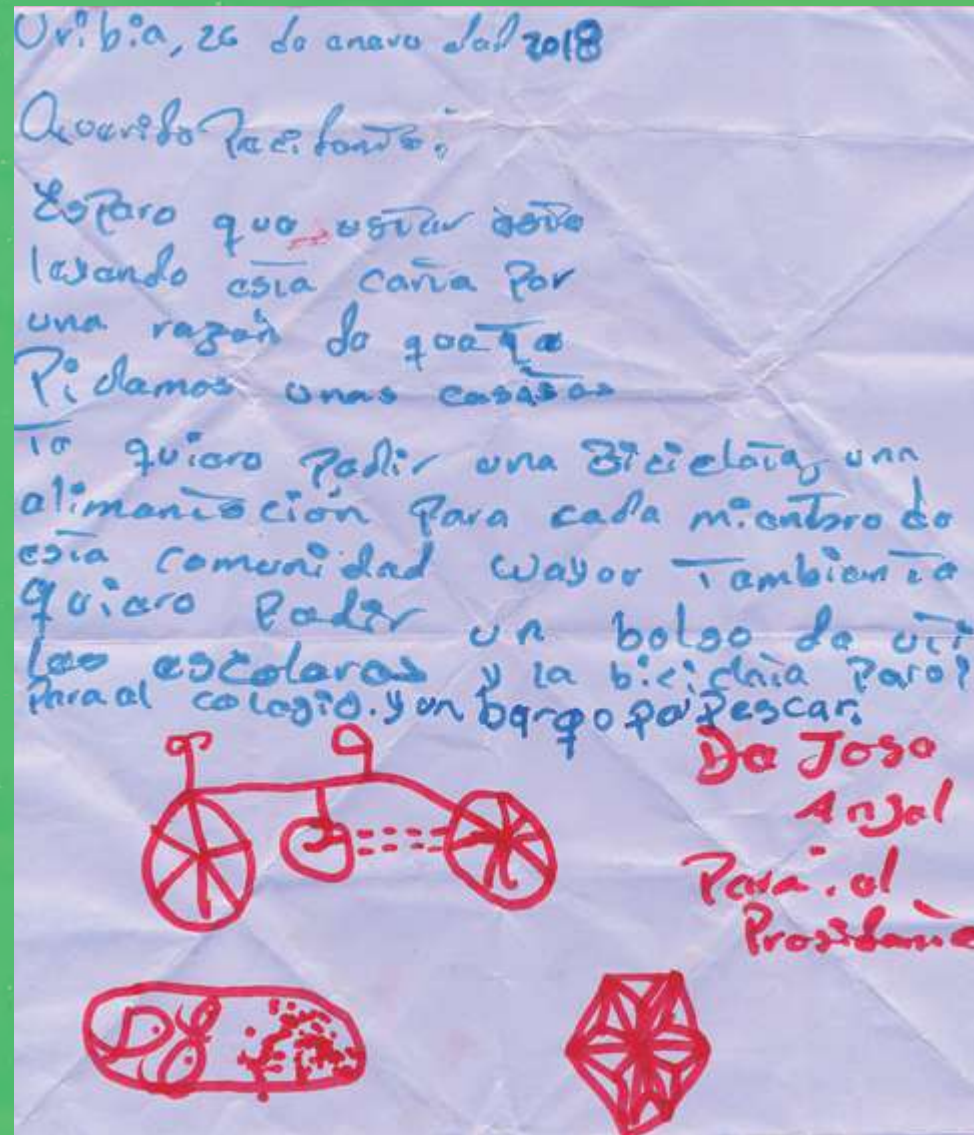 Uribia, 26 de enero del 2018
Querido Precidente:
Espero que ustar este
leyendo esta carta por
una razón de que te
Pidamos unas cosas
Te quiero Pedir una Bicicleta, una
alimentación Para cada mientbro de
esta comunidad wayou Tambien te
quiero Pedir un bolso de
los escolares y la bicicleta
Para el colegio. y un barqo pa Pescar.
De Jose
Anjel
Para el
Presidente